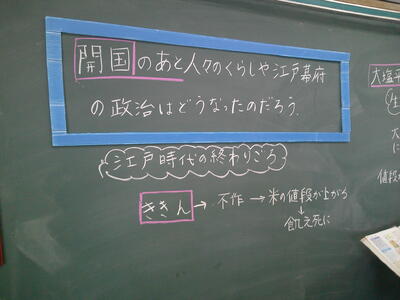 開国のあと人々のくらしや江戸幕府
の政治はどうなったのだろう.
江戸時代の終わりごろ
ききん→不作→米の値段が上がる
↓
飢え死に
大塩平